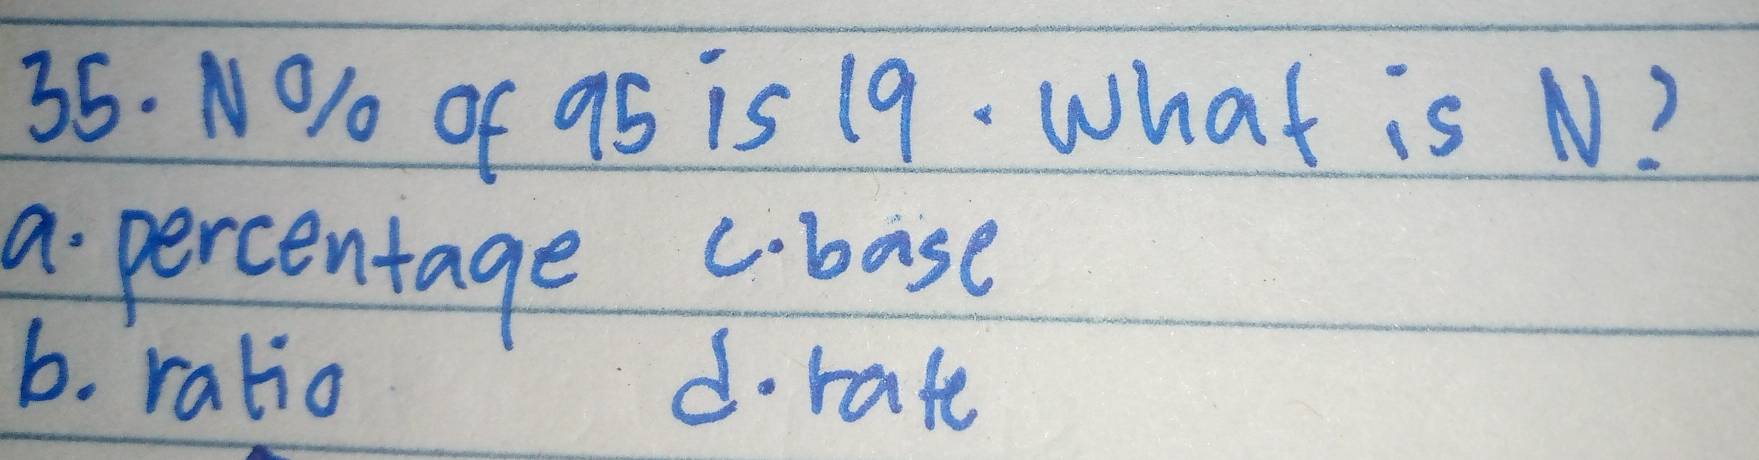 35. N% of 95 is 19. What is N?
a. percentage c. base
b. ratio d. rate